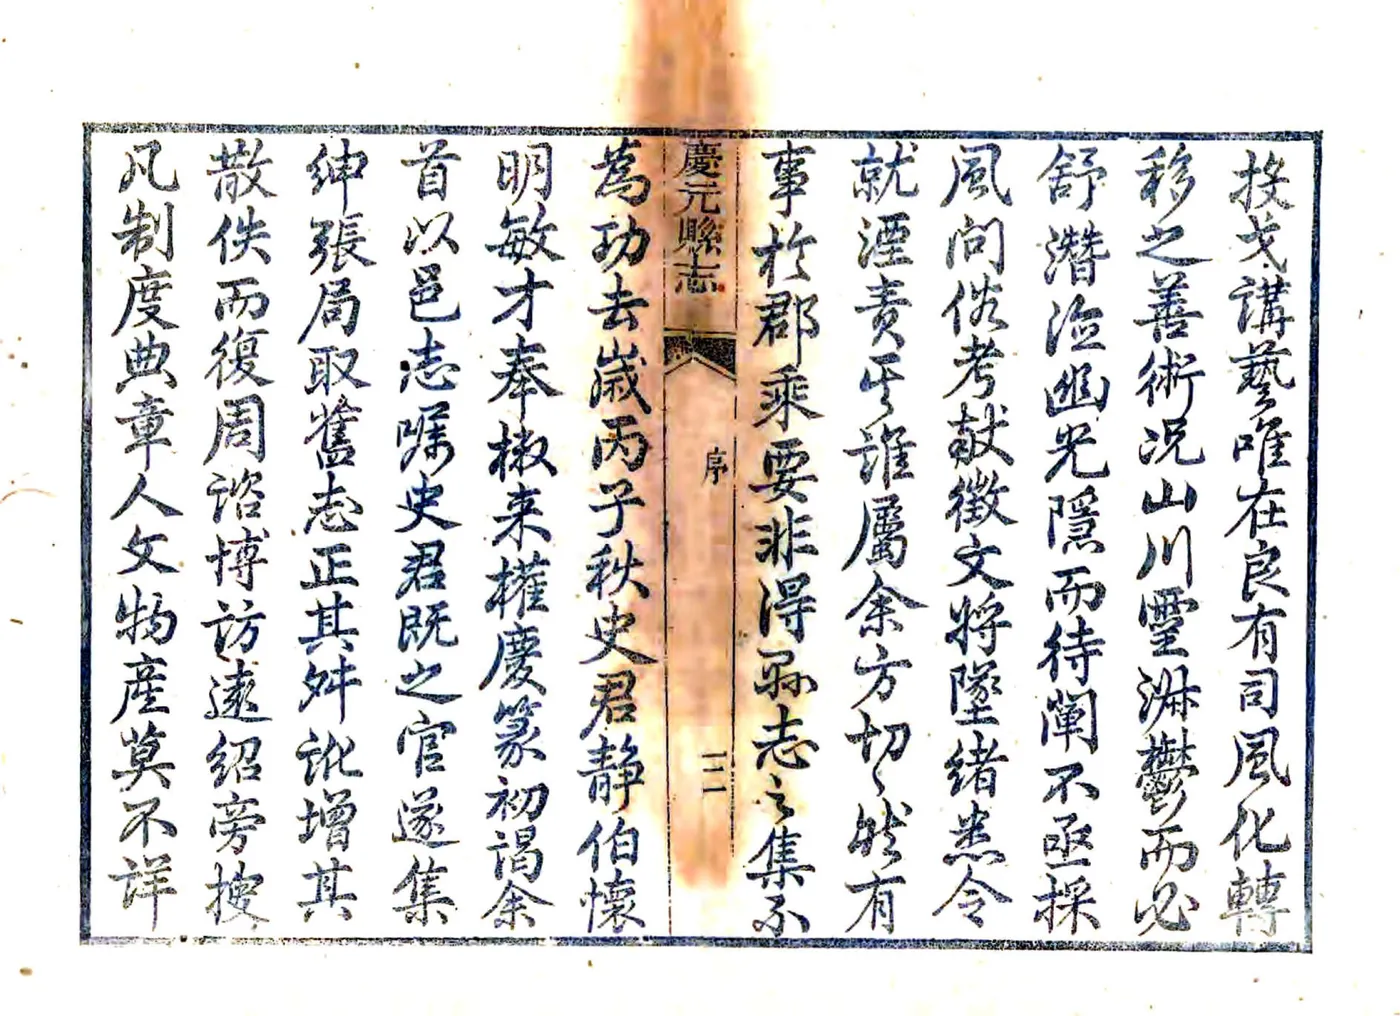 投戈講藝唯在良有司風化轉
移之善術況山川靈淑鬱而必
舒潛湮幽光隱而待闡不亟採
風問俗考献徵文將墜緒悉令
就湮責其誰屬余方切切然有
事於郡乘要非得縣志之集不
慶元縣志
序
二
為功去歲丙子秋史君靜伯懷
明敏才奉檄来權慶篆初謁余
首以邑志嘱史君既之官遂集
紳張局取舊志正其舛訛增其
散佚而復周諮博訪遠紹旁搜
凡制度典章人文物產莫不詳